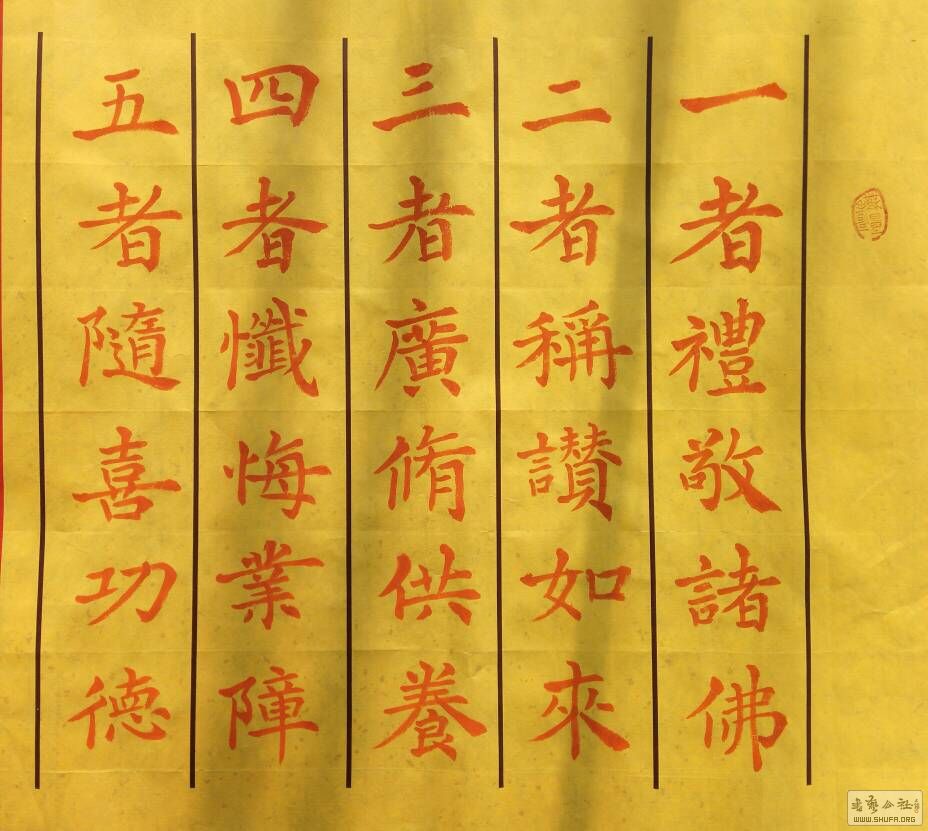 一者禮敬諸佛
二者稱讃如來
三者廣脩供養
四者懺悔業障
五者隨喜功德
書藝公社
WWW.SHUFA.ORG